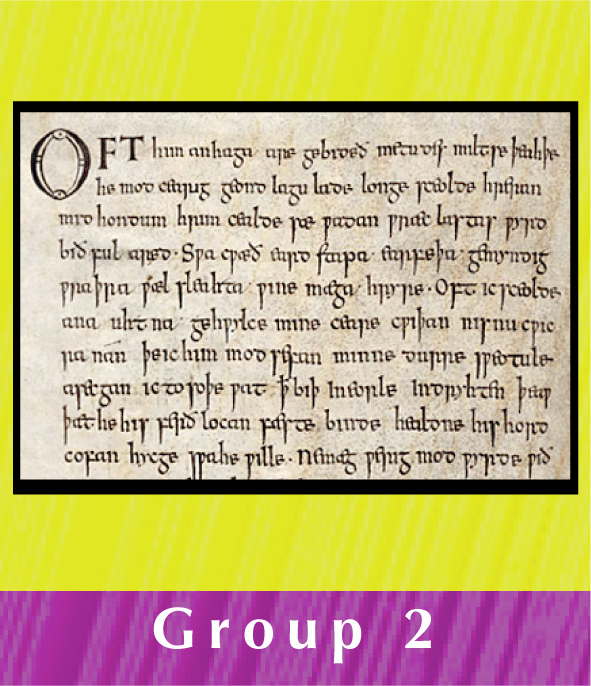 OFT him anhaga are gebideð metudes miltse þeahþe
he mod cearig geond lagu lade longe sceolde hreran
mid hondum hrim cealde sæ ƿadan ƿræc lastas ƿyrd
bið ful aræd · Sƿa cƿæð eard stapa earfeþa gemyndig
ƿraþra ƿæl sleahta ƿine mæga hryre · Oft ic sceolde
ana uhtna gehƿylce mine ceare cƿiþan nis nu cƿic
ra nan þe ic him mod sefan minne durre sƿeotule
asecgan ic to soþe ƿat ꝥ biþ in eorle indryhten þeaƿ
þæt he his ferð locan fæste binde healdne his hord
cofan hycge sƿa he ƿille · Ne mæg ƿerig mod ƿyrde ƿið
Group 2